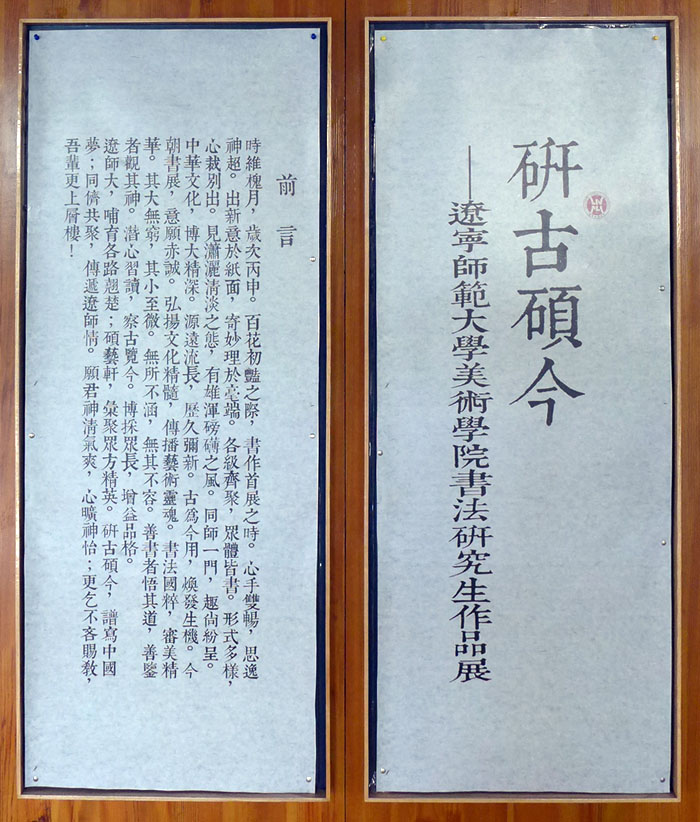 研古碩今
——遼寧師範大學美術學院書法研究生作品展
前言
時維槐月，歲次丙申。百花初豔之際，書作首展之時。心手雙暢，思逸
神超。出新意於紙面，寄妙理於毫端。各級齊聚，眾體皆書。形式多樣，
心裁別出。見瀟灑清淡之態，有雄渾磅礴之風。同師一門，趣尚紛呈。
中華文化，博大精深。源遠流長，歷久彌新。古爲今用，煥發生機。今
朝書展，意願赤誠。弘揚文化精髓，傳播藝術靈魂。書法國粹，審美精
華。其大無窮，其小至微。無所不涵，無其不容。善書者悟其道，善鑒
者觀其神。潛心習讀，察古覽今。博採眾長，增益品格。
遼師大，哺育各路翹楚；碩藝軒，彙聚眾方精英。研古碩今，譜寫中國
夢；同儕共聚，傳遞遼師情。願君神清氣爽，心曠神怡；更乞不吝賜教，
吾輩更上層樓！